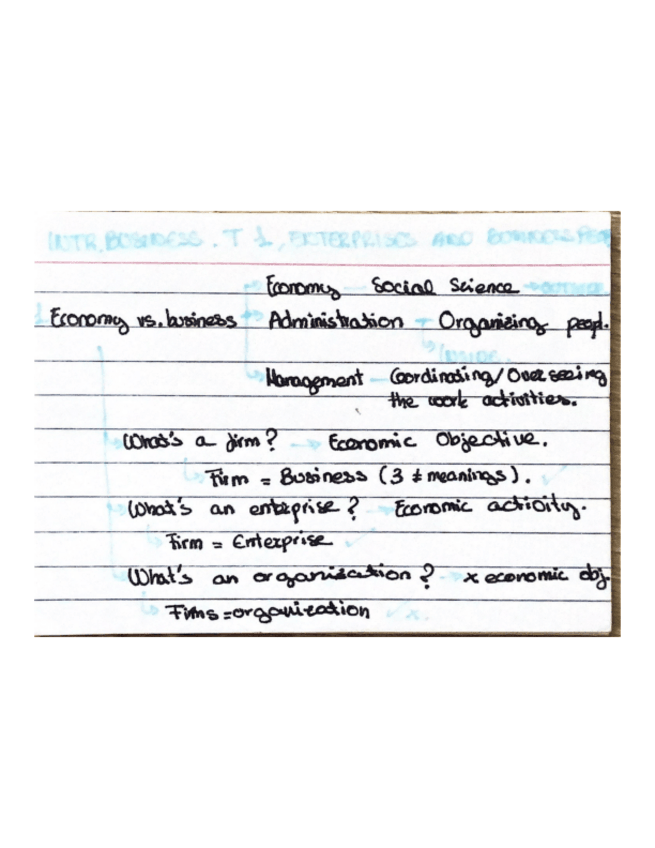 INTR. BUSINESS. T 1, ENTERPRISES AND BUSINESS PEOP
Economy — Social Science → OUTSIDE
1 Economy vs. business → Administration → Organizing peopl.
↳ INSIDE.
Management — Coordinating/Overseeing
the work activities.
What's a firm? → Economic Objective.
↳ Firm = Business (3 ≠ meanings). ✓
What's an enterprise? → Economic activity.
↳ Firm = Enterprise ✓
What's an organization? → x economic obj.
↳ Firms = organization ✓ x.